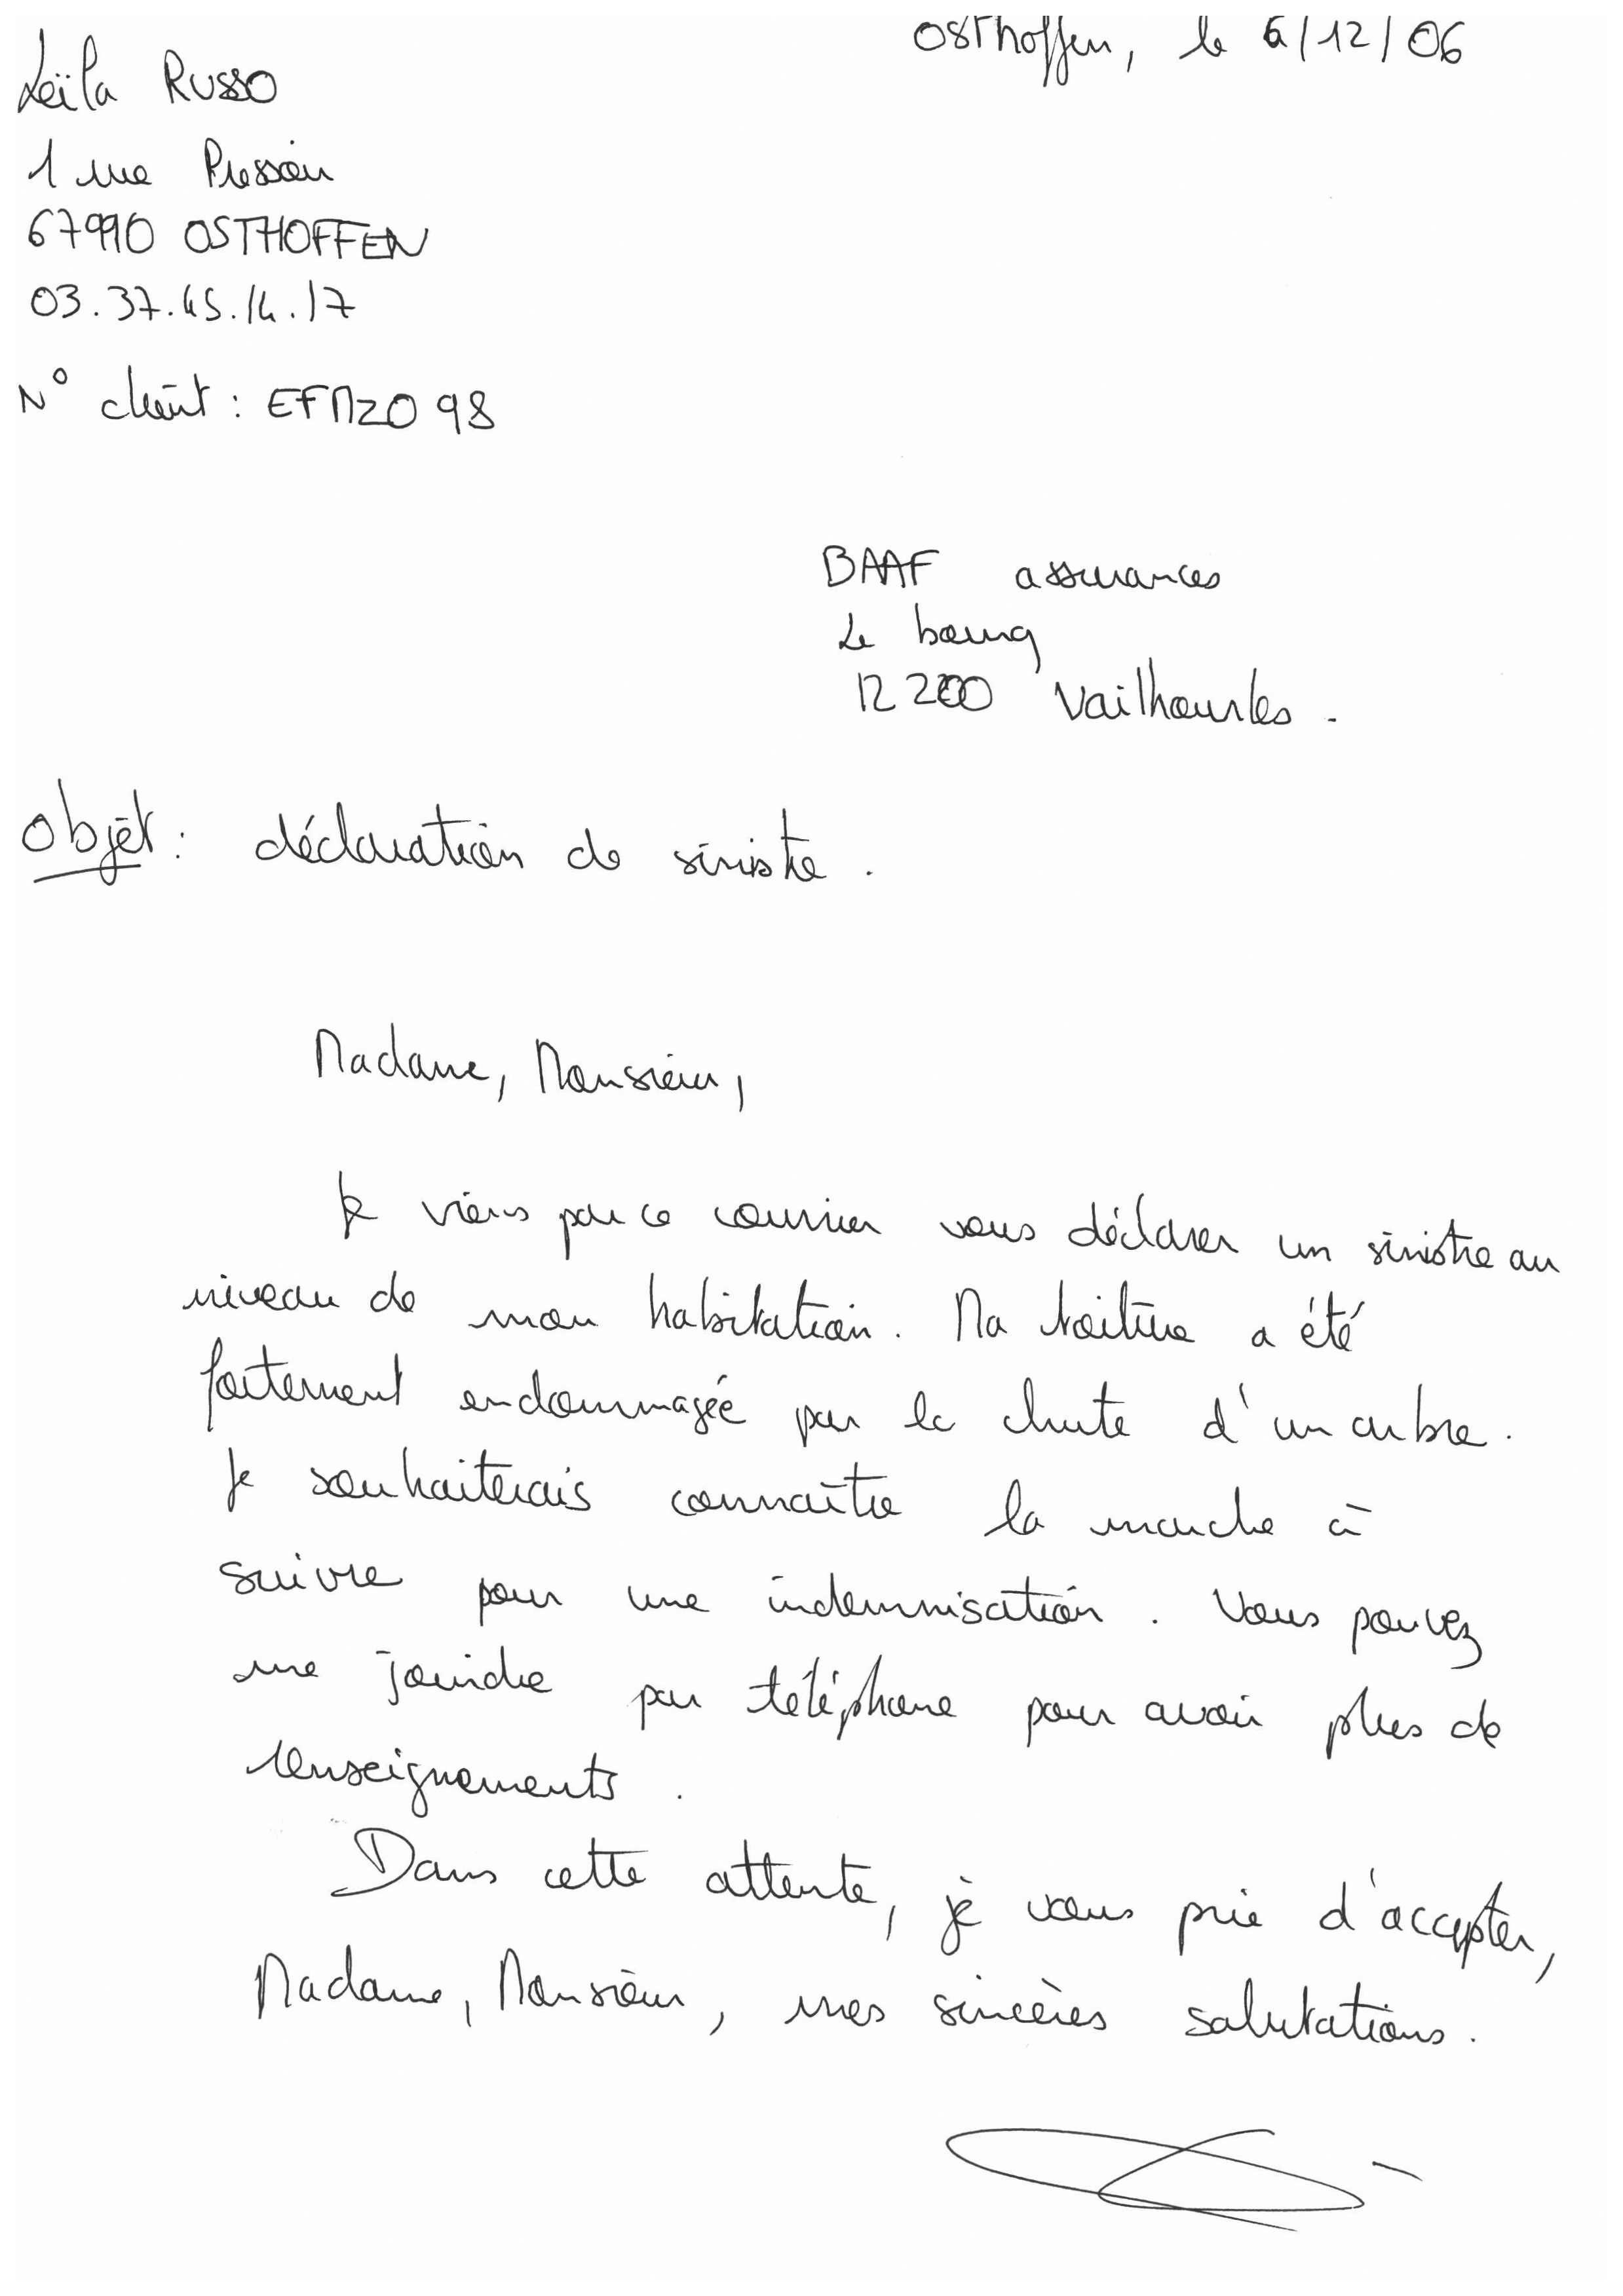 Osthoffen, le 6/12/06
Leïla Russo
1 rue Pressoir
67990 OSTHOFFEN
03.37.45.14.17
N° client : EFMZO 98
BAAF assurances
Le bourg
12200 Vailhourles.
Objet : déclaration de sinistre.
Madame, Monsieur,
Je viens par ce courrier vous déclarer un sinistre au
niveau de mon habitation. Ma toiture a été
fortement endommagée par la chute d'un arbre.
Je souhaiterais connaître la marche à
suivre pour une indemnisation. Vous pouvez
me joindre par téléphone pour avoir plus de
renseignements.
Dans cette attente, je vous prie d'accepter,
Madame, Monsieur, mes sincères salutations.